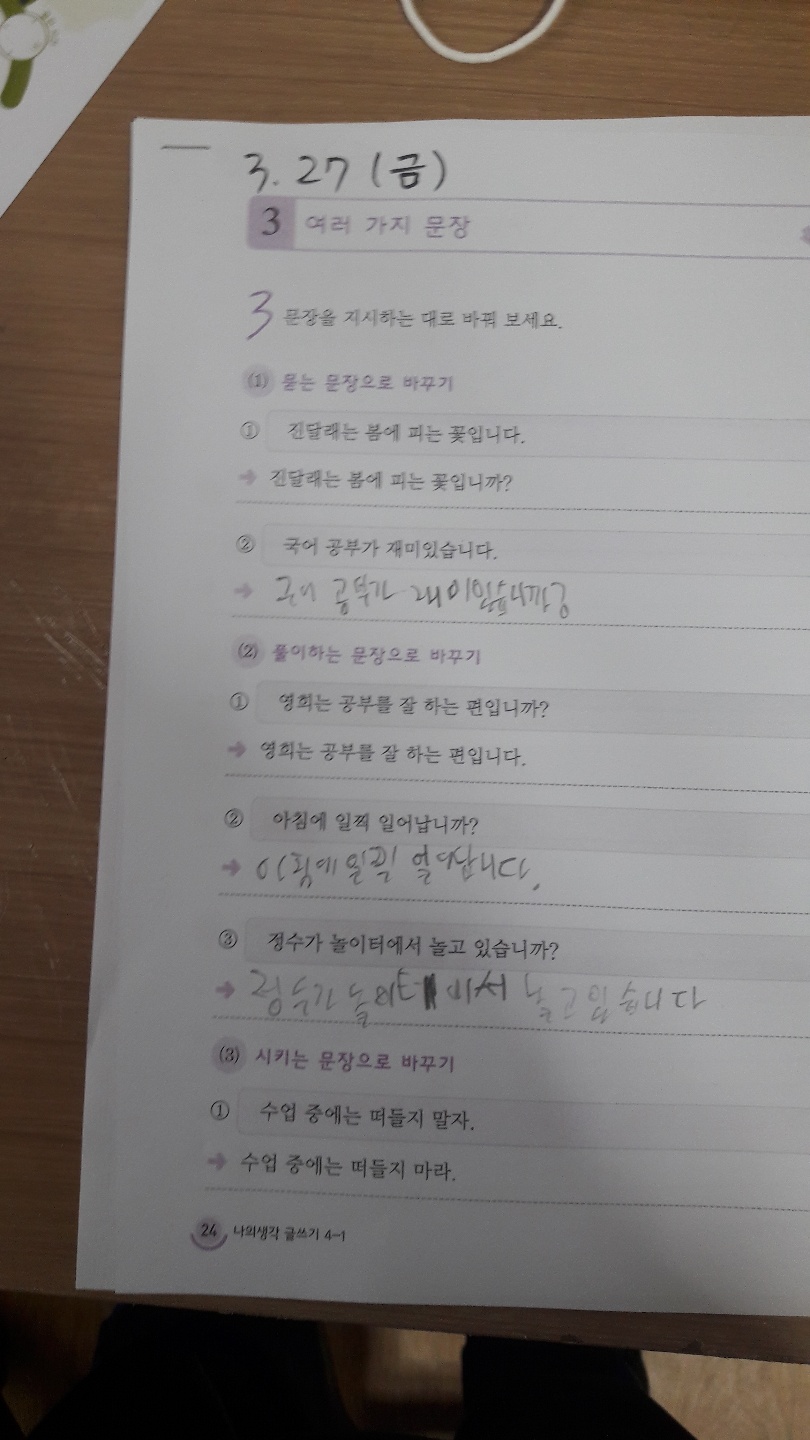 3. 27 (금)
3 여러 가지 문장
3 문장을 지시하는 대로 바꿔 보세요.
(1) 묻는 문장으로 바꾸기
① 진달래는 봄에 피는 꽃입니다.
➔ 진달래는 봄에 피는 꽃입니까?
② 국어 공부가 재미있습니다.
➔ 공부가
(2) 풀이하는 문장으로 바꾸기
① 영희는 공부를 잘 하는 편입니까?
➔ 영희는 공부를 잘 하는 편입니다.
② 아침에 일찍 일어납니까?
➔
③ 정수가 놀이터에서 놀고 있습니까?
➔ 정수가 놀고 있습니다
(3) 시키는 문장으로 바꾸기
① 수업 중에는 떠들지 말자.
➔ 수업 중에는 떠들지 마라.
24 나의생각 글쓰기 4-1